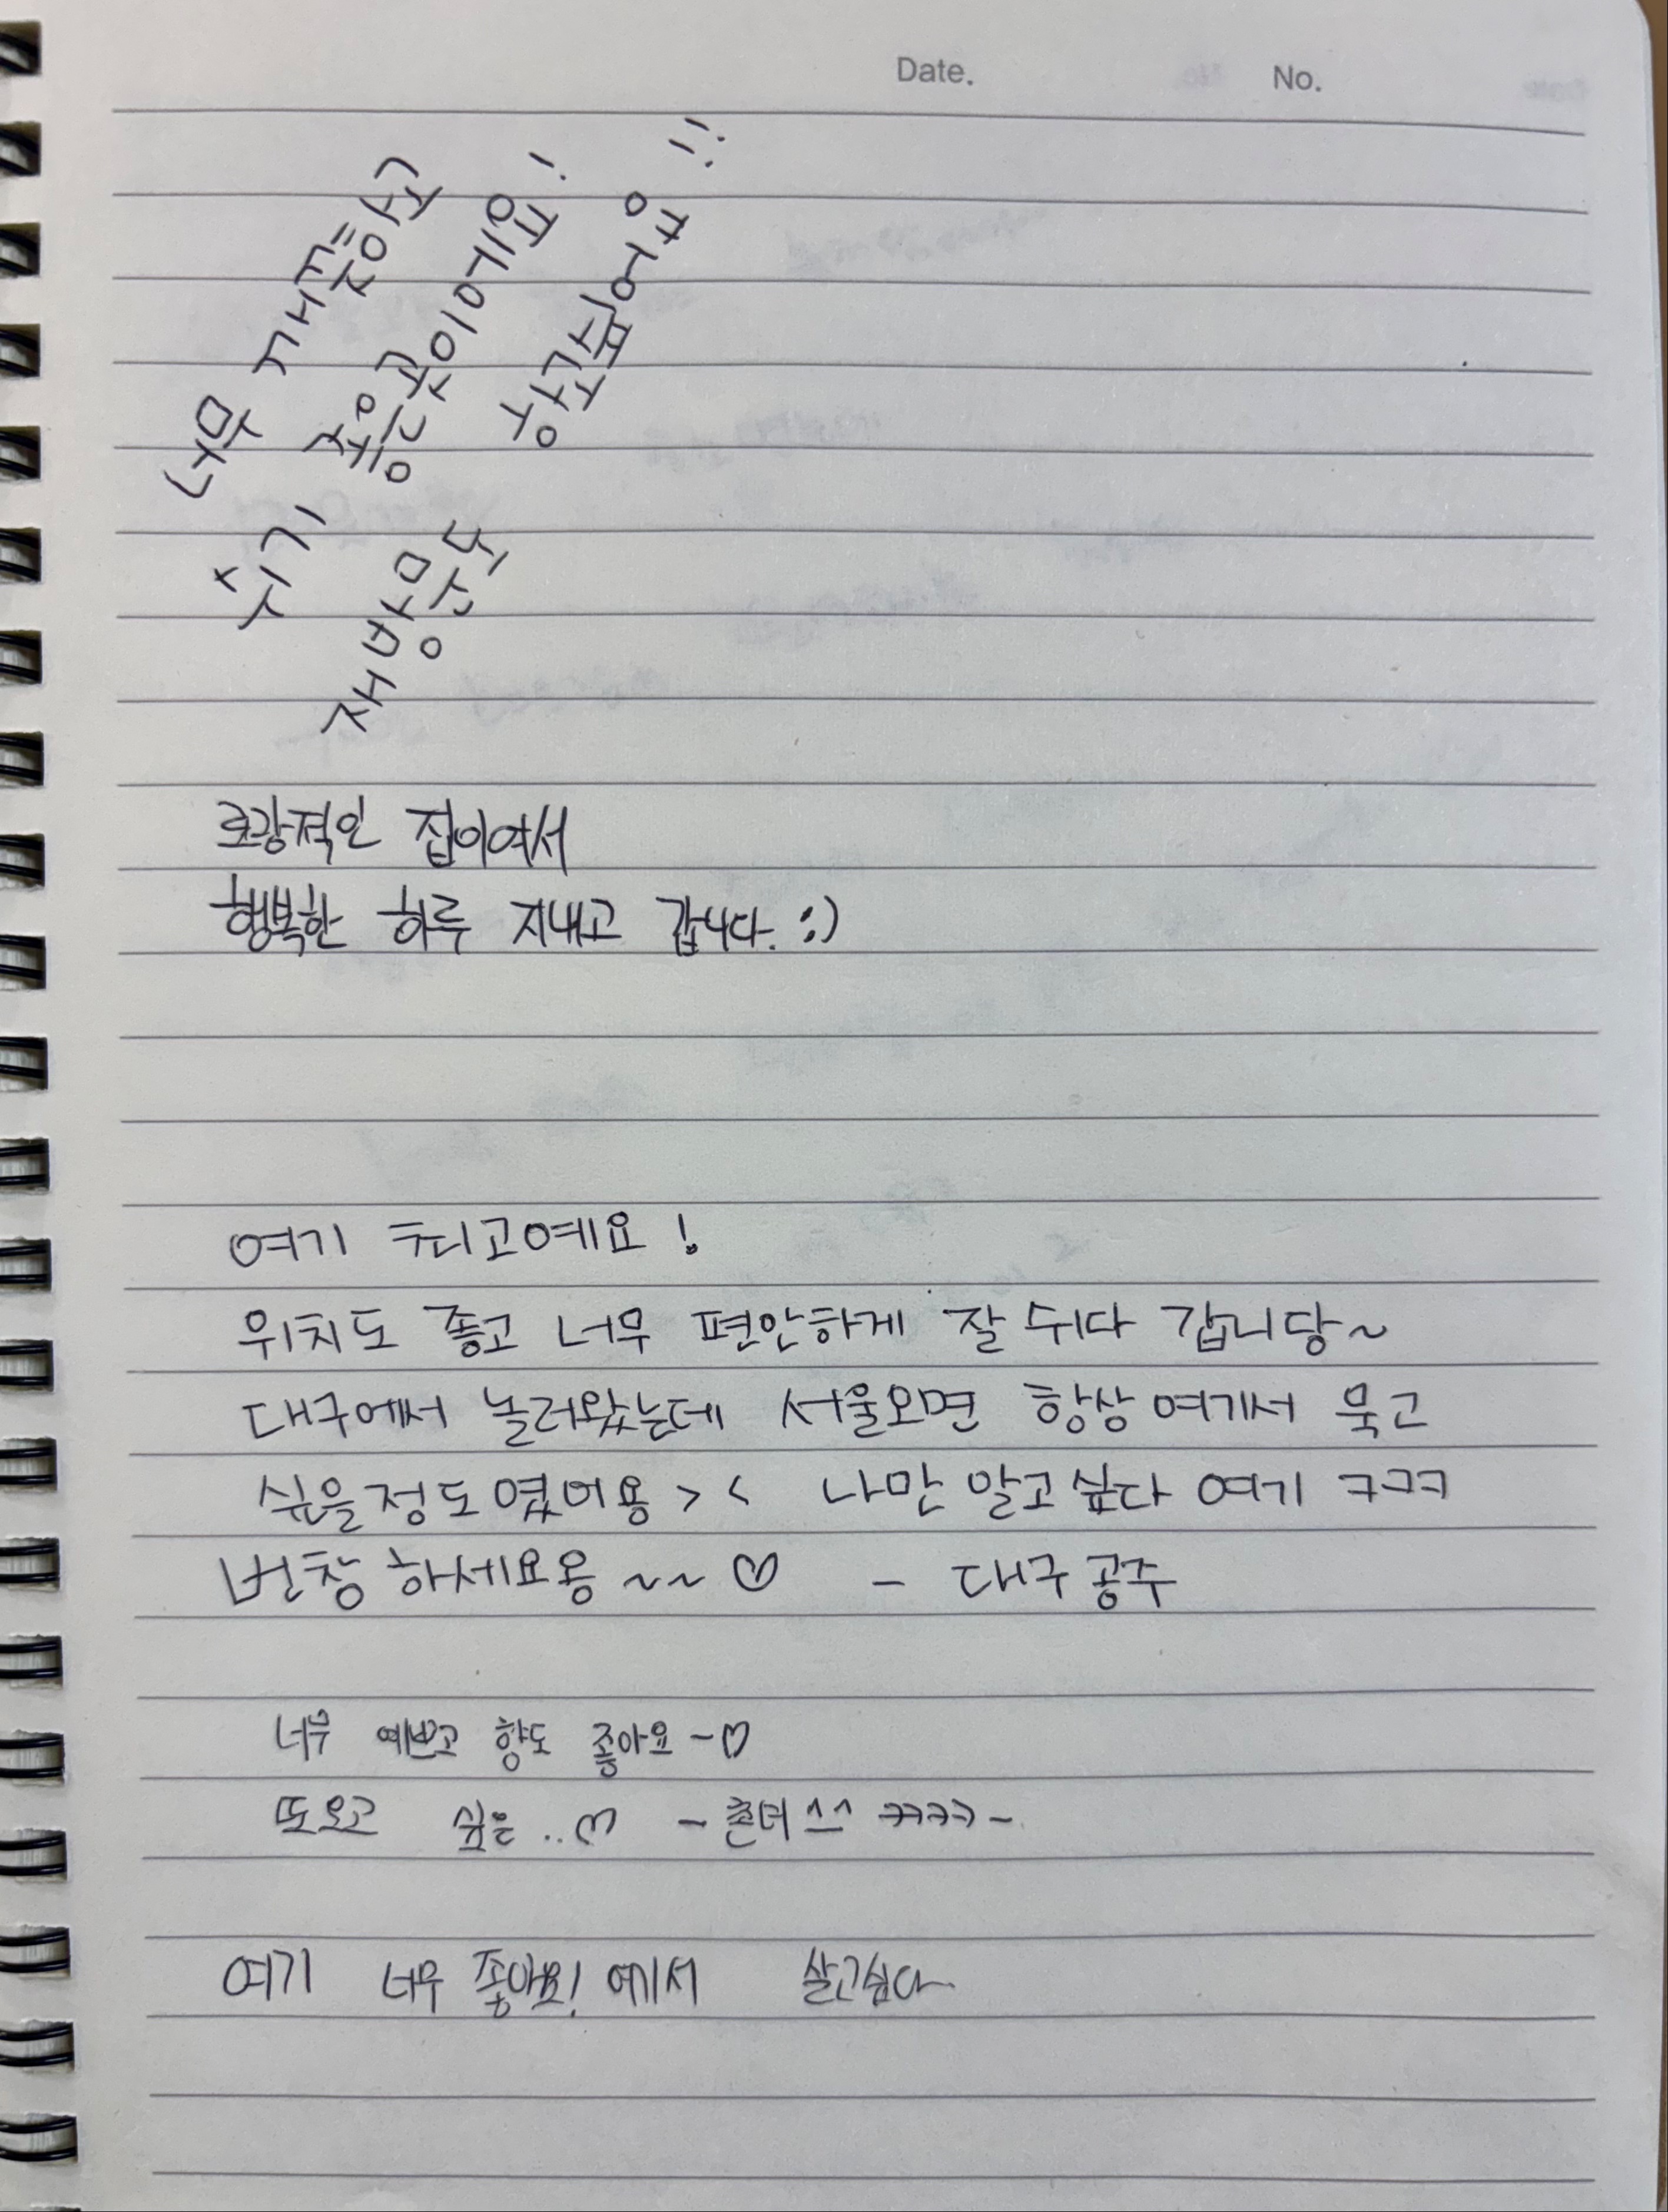 Date. No.
너무 깨끗하고
쉬기 좋은 곳이에요!
재방문도 하고싶어요!!
로망적인 집이여서
행복한 하루 지내고 갑니다. :)
여기 최고예요!
위치도 좋고 너무 편안하게 잘 쉬다 갑니당~
대구에서 놀러왔는데 서울오면 항상 여기서 묵고
싶을정도였어용 > < 나만 알고싶다 여기 ㅋㅋㅋ
번창하세요옹~~♡ - 대구공주
너무 예쁘고 향도 좋아요~♡
또오고 싶은..♡ - 쵼더 ^^ ㅋㅋㅋㅋ -
여기 너무 좋아요! 여기서 살고싶다